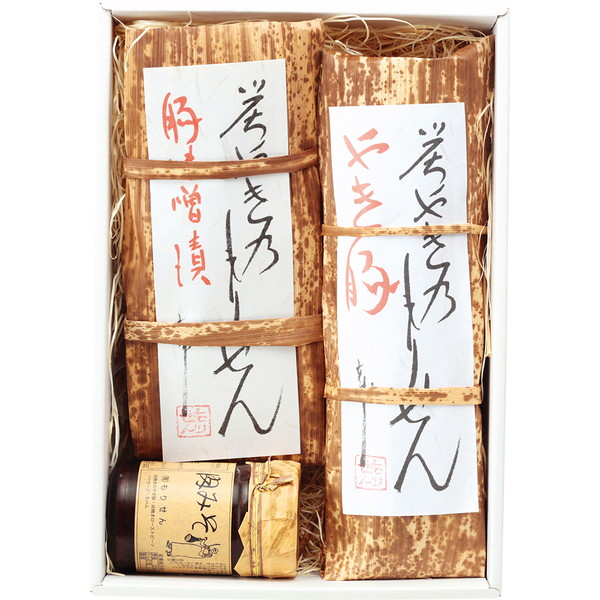 炭やき乃もりせん
豚味噌漬
炭やき乃もりせん
やき豚
肉みそ
もりせん